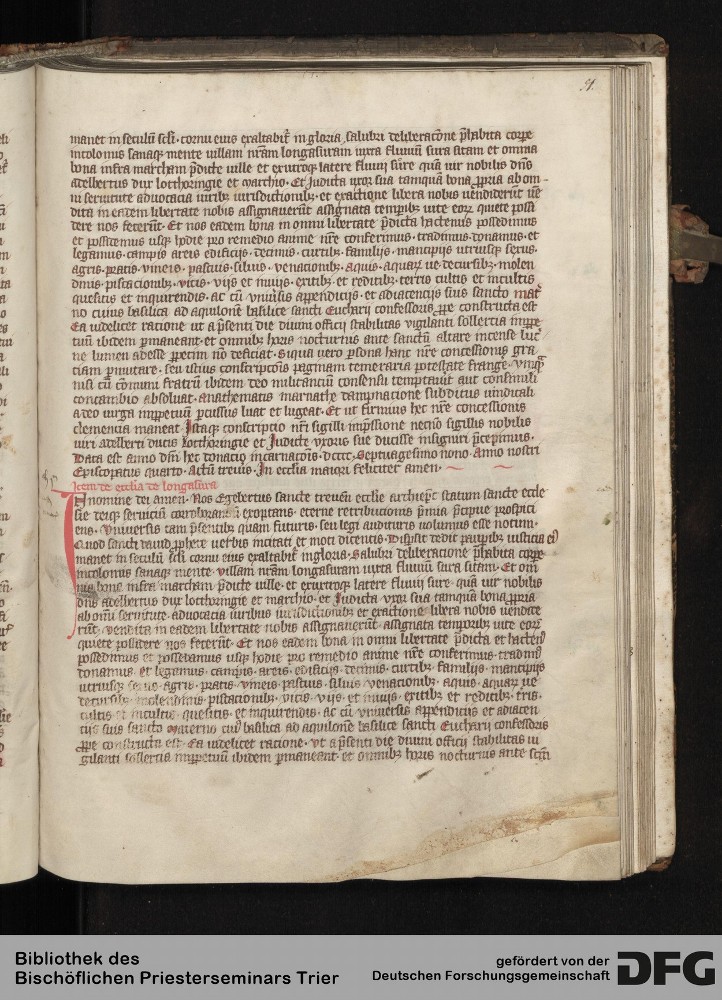 51.
manet in seculū scłi · cornu eius exaltabit̄ in gloria, salubri deliberacōne p̄habita corpe
incolomis sanaqꝫ mente villam nr̄am longasuram iuxta fluuiū sura sitam et omnia
bona infra marcham p̄dicte uille et exutroqꝫ latere fluuij sure quā uir nobilis dn̄s
adelbertus dux lotthoringie et marchio · Et Judicta uxor sua tamquā bona ꝓpria ab om-
ni seruitute aduocacia iuribꝫ iurisdictionibꝫ et exactione libera nobis uendiderūt uē
dita in eadem libertate nobis assignauerūt assignata tempibꝫ uite eoꝝ quiete possi
dere nos fecerūt · Et nos eadem bona in omni libertate p̄dicta hactenus possedimus
et possidemus usqꝫ hodie pro remedio anime nr̄e conferimus · tradimus · donamus · et
legamus · campis areis edificijs · decimis · curtibꝫ · familijs · mancipijs utriusqꝫ sexus ·
agris · pratis · vineis · pascuis · siluis · venacionibꝫ · aquis · aquaꝝ ue decursibꝫ · molen
dinis · piscacionibꝫ · vicis · vijs et inuijs · exitibꝫ et reditibꝫ · terris cultis et incultis
quesitis et inquirendis · ac cū vniuersis appendicijs · et adiacencijs suis sancto mat̄
no cuius basilica ad aquilonē basilice sancti Eucharij confessoris ꝓpe constructa est
Ea uidelicet ratione ut a p̄senti die diuini officij stabilitas vigilanti sollercia inꝑpe
tuū ibidem ꝑmaneant · et omnibꝫ horis nocturnis ante sanctū altare incense luc̄
ne lumen adesse ꝓpecim nō deficiat · Siqua uero ꝑsona hanc nr̄e concessionis gra
ciam ꝑmutare · seu istius conscripcōnis paginam temeraria potestate frange · vmqꝫ
nisi cū cōmuni fratrū ibidem deo militanciū consensu temptauit aut consimili
concambio absoluat · anathematis marnathe dampnacione subditus vindicali
a deo uirga inꝑpetuū ꝑcussus luat et lugeat · Et ut firmius hec nr̄e concessionis
clemencia maneat Istaqꝫ conscriptio nr̄i sigilli inp̄ssione necnō sigillis nobilis
uiri adelberti ducis lotthoringie et Judicte vxoris sue ducisse insigniri p̄cepimus ·
Data est anno dn̄i hec donacio incarnacōis · dcccc · Septuagesimo nono · Anno nostri
Episcopatus quarto · Actū treuis · In ecclia maiori feliciter amen ·
Item de ecclia de longasura
In nomine dei amen · Nos Egebertus sancte treuen̄ ecclie archiep̄c statum sancte eccle-
sie deiqꝫ seruiciū corroborari exoptans · eterne retribucionis p̄mia p̄cipue prospici
ens · Vniuersis tam p̄sentibꝫ quam futuris · seu legi audituris uolumus esse notum ·
Quod sancti dauid ꝓphete verbis incitati et moti dicentis · Dispersit dedit pauꝑibꝫ iusticia ei9
manet in seculū scłi cornu eius exaltabit̄ in gloria · Salubri deliberacione p̄habita corpe
incolomis sanaqꝫ mente · villam nr̄am longasuram iuxta fluuiū sura sitam · Et om̄
nia bona infra marcham p̄dicte uille · et exutroqꝫ latere fluuij sure · quā uir nobilis
dn̄s adelbertus dux lotthoringie et marchio · et Judicta vxor sua tamquā bona ꝓpria
ab omni seruitute · aduocacia iuribus iurisdictionibꝫ et exactione libera nobis uendide
rūt · vendita in eadem libertate nobis assignauerūt · assignata temporibꝫ uite eoꝝ
quiete possidere nos fecerūt · Et nos eadem bona in omni libertate p̄dicta et hacten9
possedimus et possedamus usqꝫ hodie pro remedio anime nr̄e conferimus · tradim9
donamus · et legamus · campis · areis · edificijs · decimis · curtibꝫ · familijs · mancipijs
utriusqꝫ sexus · agris · pratis · vineis pascuis · siluis venacionibꝫ · aquis · aquaꝝ ue
decursibꝫ · molendinis · piscacionibꝫ · vicis · vijs · et inuijs · exitibꝫ et reditibꝫ · t̄ris ·
cultis et incultis · quesitis et inquirendis · ac cū vniuersis appendicijs et adiacen
cijs suis sancto materno cui9 basilica ad aquilonē basilice sancti Eucharij confessoris
ꝓpe constructa est · Ea uidelicet racione · vt a p̄senti die diuini officij stabilitas ui
gilanti sollercia inꝑpetuū ibidem ꝑmaneant · et omnibꝫ horis nocturnis ante scm̄
Bibliothek des
Bischöflichen Priesterseminars Trier
gefördert von der
Deutschen Forschungsgemeinschaft
DFG